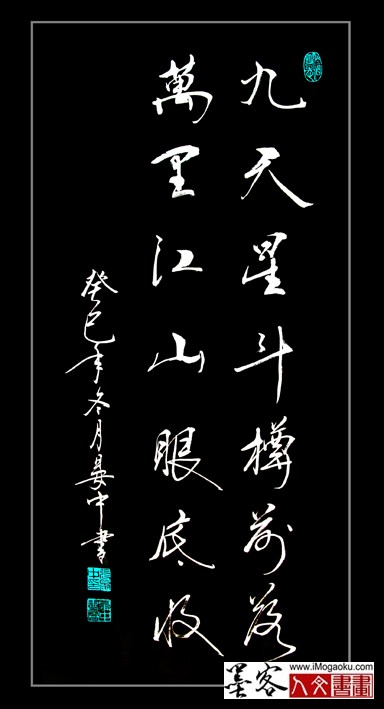 九天星斗樽前落
萬里江山眼底收
癸巳年冬月晏中書
墨客
www.iMogaoku.com
人文書畫